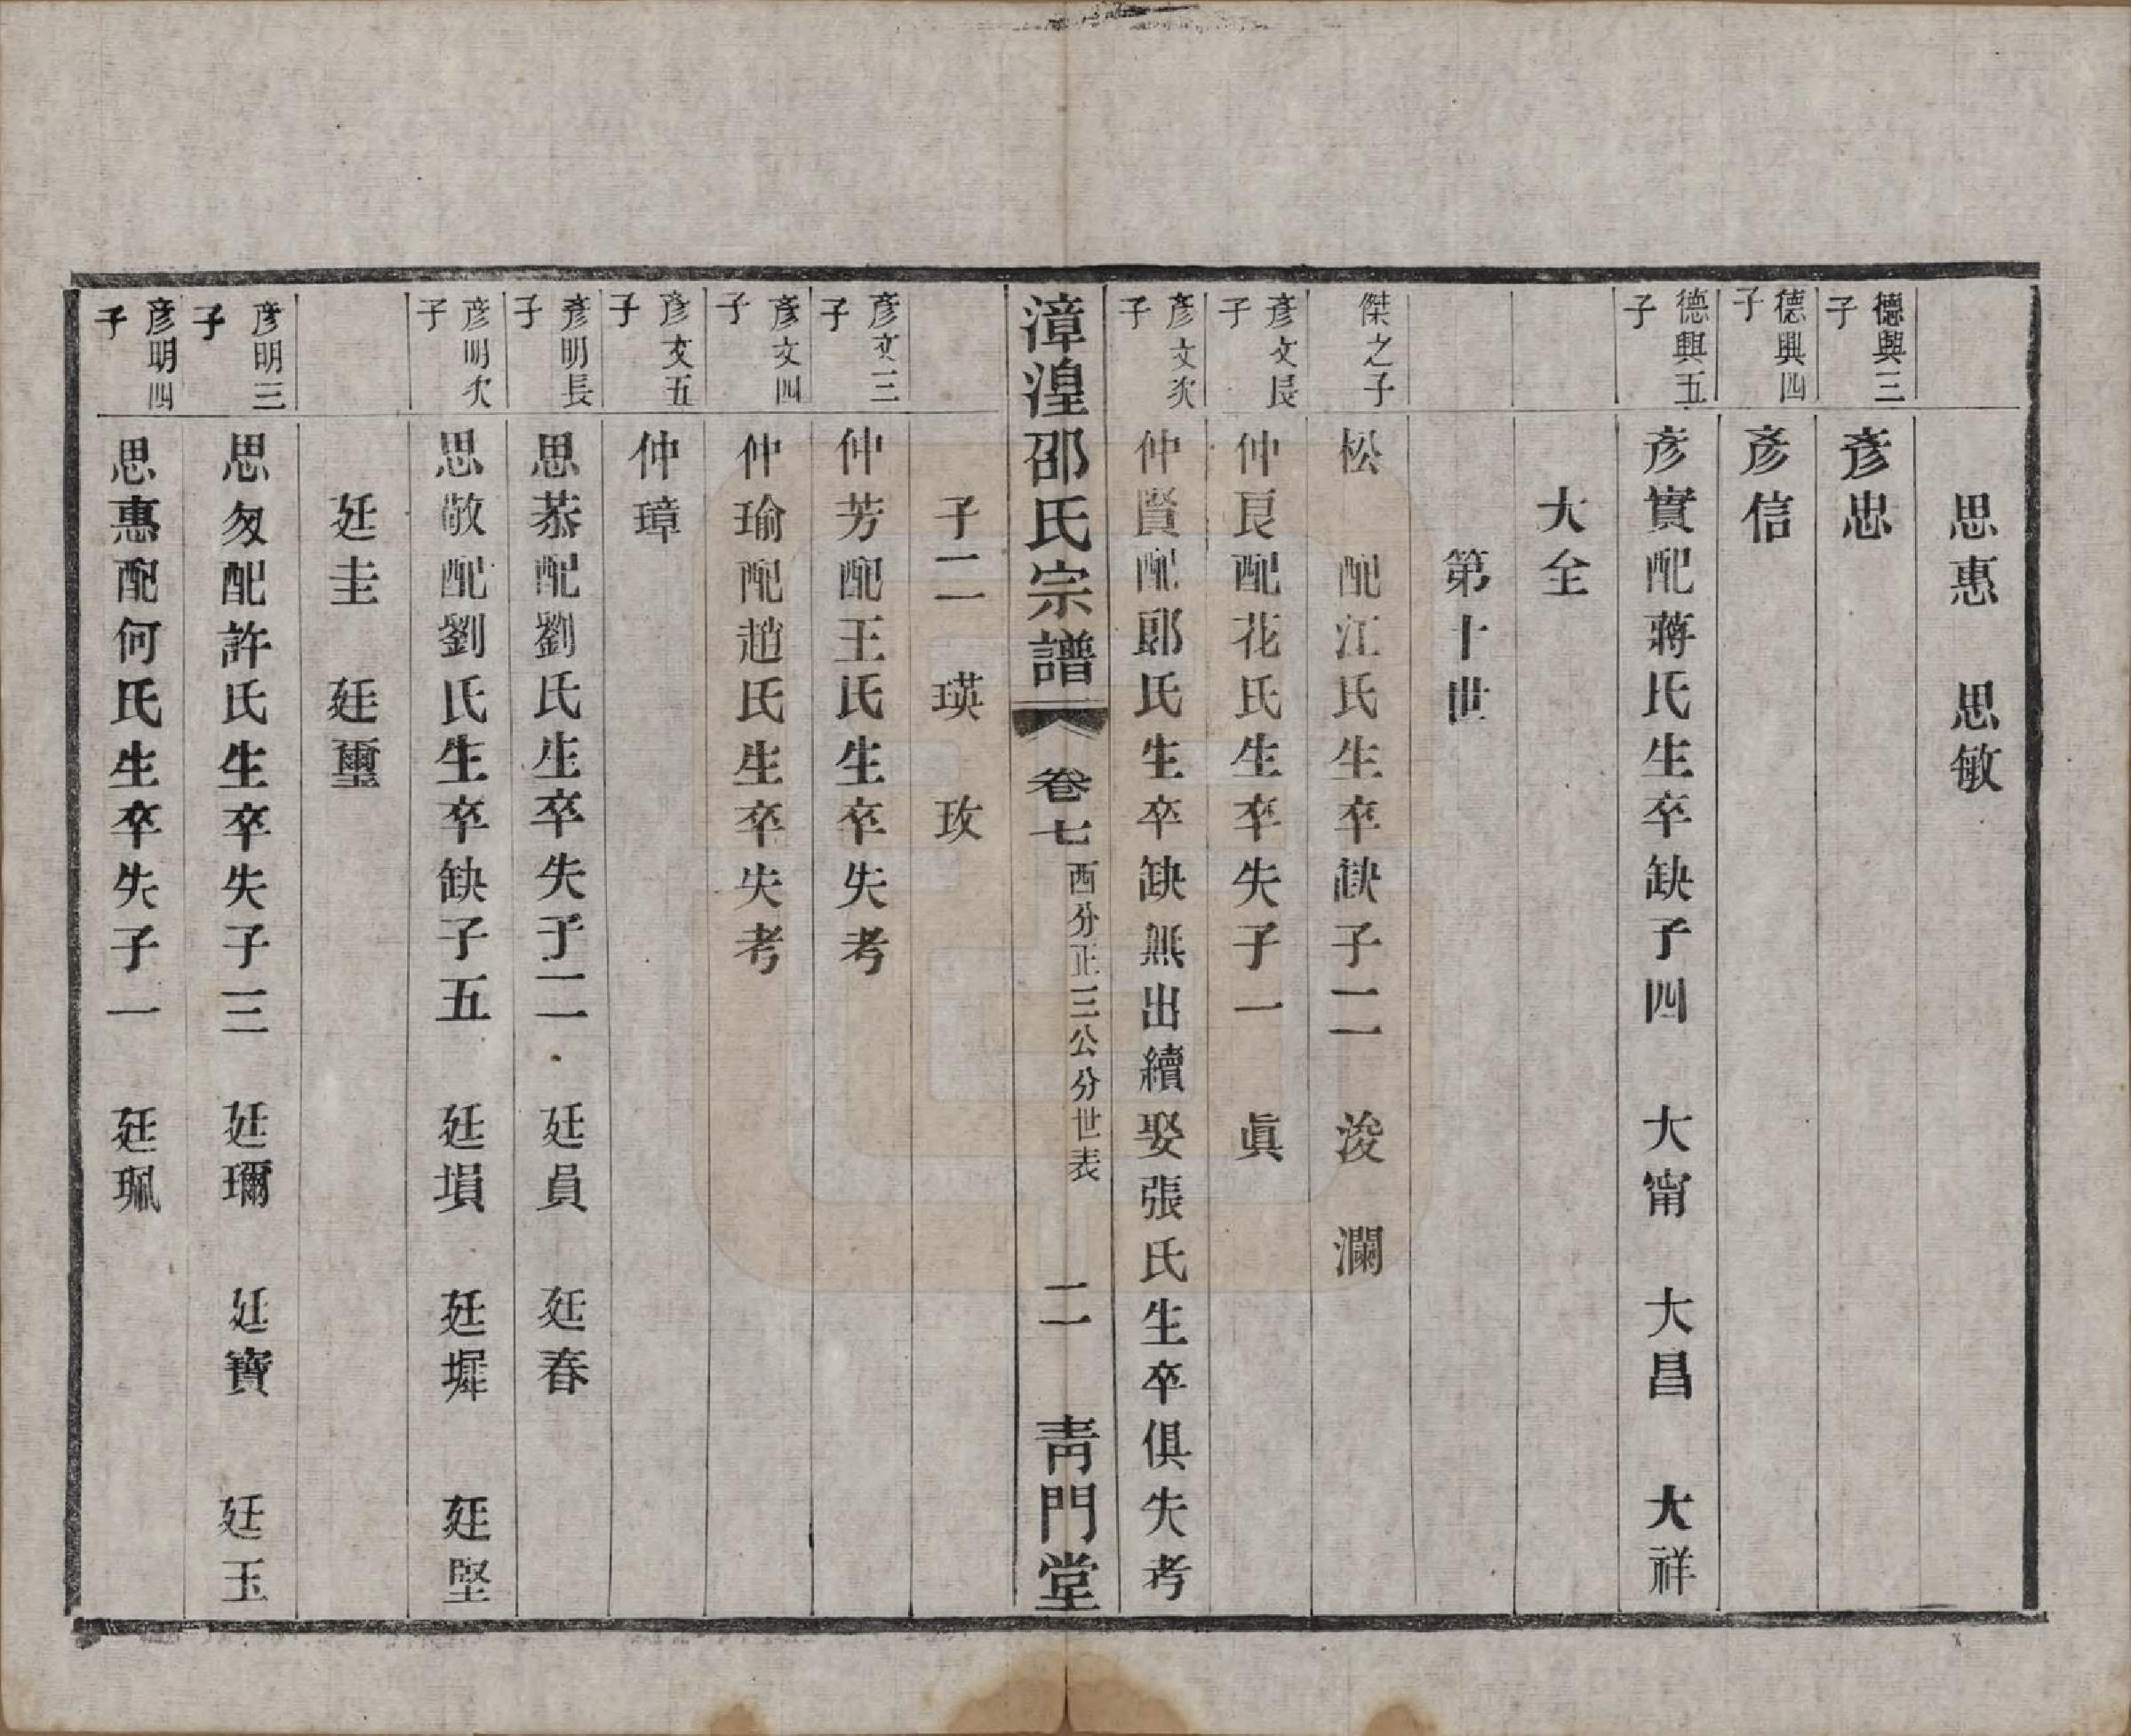 思惠　思敏
德興三子　彥忠
德興四子　彥信
德興五子　彥實配蔣氏生卒缺子四　大甯　大昌　大祥
大全
第十世
傑之子　松　配江氏生卒缺子二　浚　瀾
彥文長子　仲良配花氏生卒失子一　眞
彥文次子　仲賢配郎氏生卒缺無出續娶張氏生卒俱失考
漳湟邵氏宗譜　卷七　西分正三公分世表　二　靑門堂
子二　瑛　玫
彥文三子　仲芳配王氏生卒失考
彥文四子　仲瑜配趙氏生卒失考
彥文五子　仲璋
彥明長子　思恭配劉氏生卒失子二　廷員　廷春
彥明次子　思敬配劉氏生卒缺子五　廷塤　廷墀　廷堅
廷圭　廷璽
彥明三子　思匆配許氏生卒失子三　廷瓓　廷寶　廷玉
彥明四子　思惠配何氏生卒失子一　廷珮